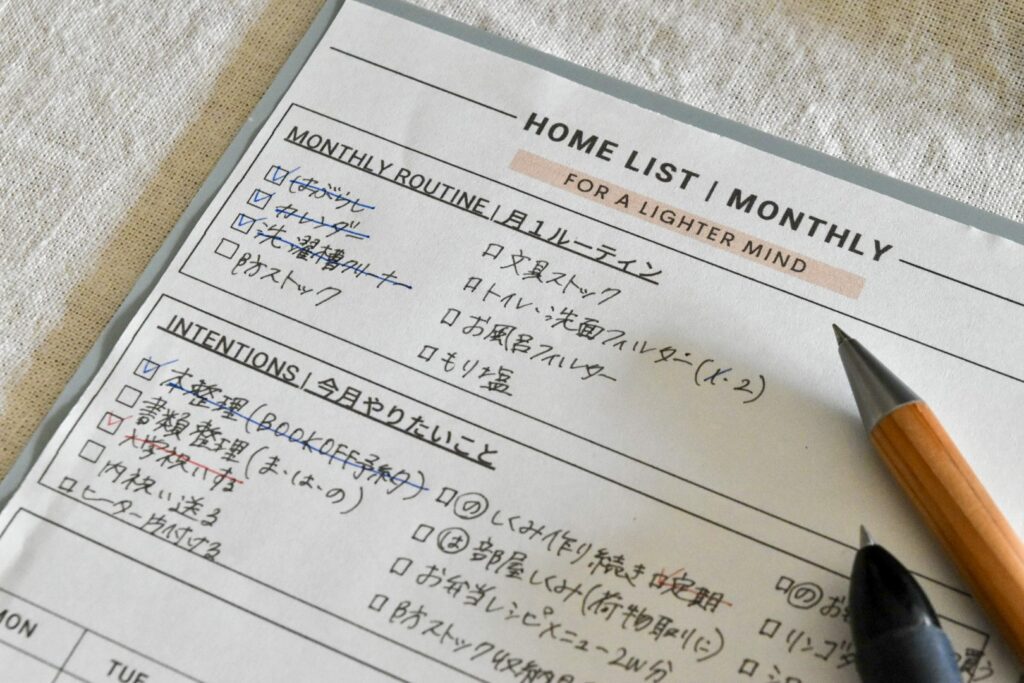 HOME LIST | MONTHLY
FOR A LIGHTER MIND
MONTHLY ROUTINE | 月1ルーティン
はがらし
カレンダー
洗濯槽クリーナー
防ストック
文具ストック
トイレ・洗面フィルター(1・2)
お風呂フィルター
もり塩
INTENTIONS | 今月やりたいこと
本整理(BOOKOFF予約)
書類整理(ま・は・の)
入学祝いする
内祝い送る
ヒーター片付ける
の しくみ作り続き
定期
は 部屋しくみ(荷物取りに)
お弁当レシピメニュー2w分
防ストック収納
の お
リンゴ
買う
MON
TUE